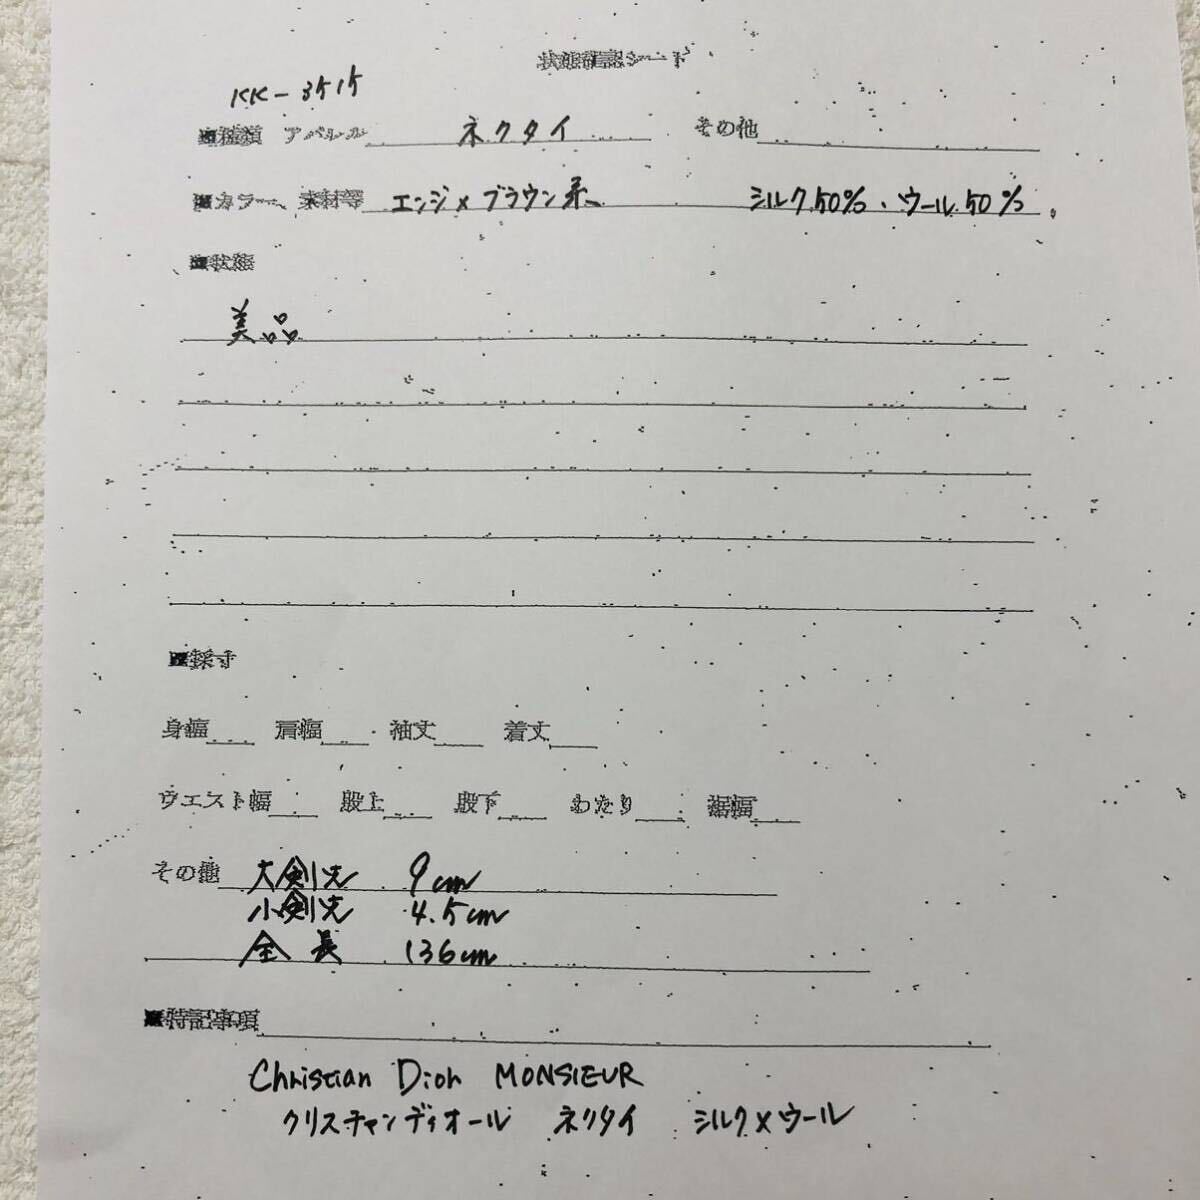 状態確認シート
KK-3515
■種類 アパレル ネクタイ その他
■カラー、素材等 エンジ×ブラウン系 シルク50%・ウール50%。
■状態
美品
■採寸
身幅 肩幅 袖丈 着丈
ウエスト幅 股上 股下 わたり 裾幅
その他 大剣先 9cm
小剣先 4.5cm
全長 136cm
■特記事項
Christian Dior MONSIEUR
クリスチャンディオール ネクタイ シルク×ウール